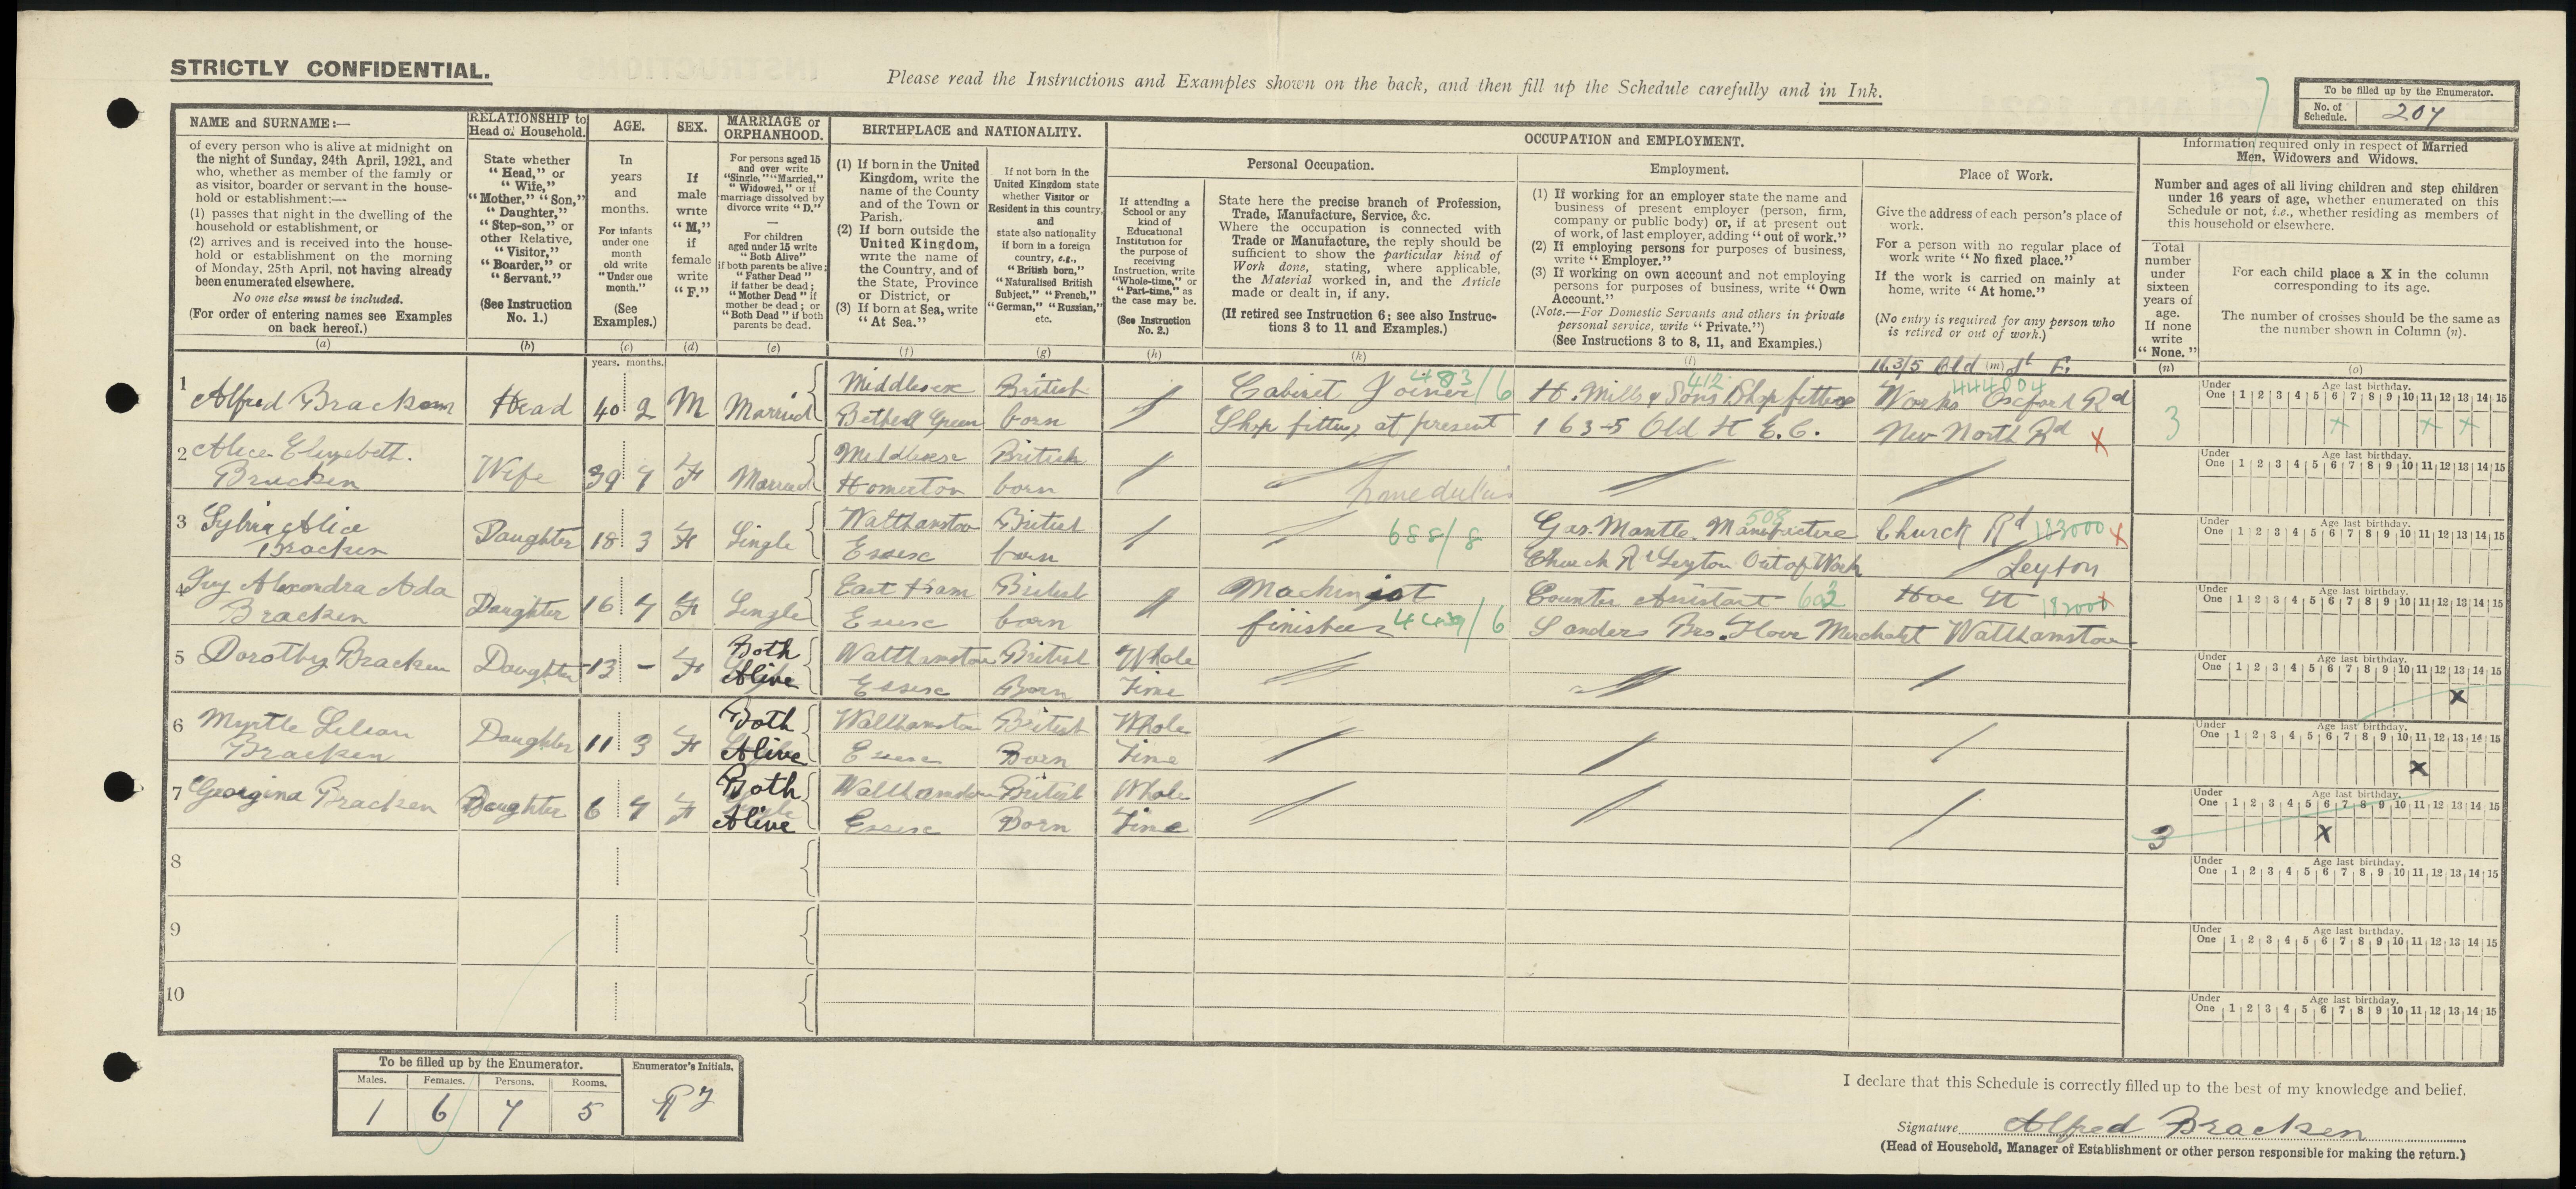 STRICTLY CONFIDENTIAL.
Please read the Instructions and Examples shown on the back, and then fill up the Schedule carefully and in Ink.
To be filled up by the Enumerator.
No. of Schedule. 207
NAME and SURNAME:—
of every person who is alive at midnight on
the night of Sunday, 24th April, 1921, and
who, whether as member of the family or
as visitor, boarder or servant in the house-
hold or establishment:—
(1) passes that night in the dwelling of the
household or establishment, or
(2) arrives and is received into the house-
hold or establishment on the morning
of Monday, 25th April, not having already
been enumerated elsewhere.
No one else must be included.
(For order of entering names see Examples
on back hereof.)
(a)
RELATIONSHIP to
Head of Household.
State whether
"Head," or
"Wife,"
"Mother," "Son,"
"Daughter,"
"Step-son," or
other Relative,
"Visitor,"
"Boarder," or
"Servant."
(See Instruction
No. 1.)
(b)
AGE.
In
years
and
months.
For infants
under one
month
old write
"Under one
month."
(See
Examples.)
(c)
years. months.
SEX.
If
male
write
"M,"
if
female
write
"F."
(d)
MARRIAGE or
ORPHANHOOD.
For persons aged 15
and over write
"Single," "Married,"
"Widowed," or if
marriage dissolved by
divorce write "D."
For children
aged under 15 write
"Both Alive"
if both parents be alive;
"Father Dead"
if father be dead;
"Mother Dead" if
mother be dead; or
"Both Dead" if both
parents be dead.
(e)
BIRTHPLACE and NATIONALITY.
(1) If born in the United
Kingdom, write the
name of the County
and of the Town or
Parish.
(2) If born outside the
United Kingdom,
write the name of
the Country, and of
the State, Province
or District, or
(3) If born at Sea, write
"At Sea."
(f)
If not born in the
United Kingdom state
whether Visitor or
Resident in this country,
and
state also nationality
if born in a foreign
country, e.g.,
"British born,"
"Naturalised British
Subject," "French,"
"German," "Russian,"
etc.
(g)
OCCUPATION and EMPLOYMENT.
If attending a
School or any
kind of
Educational
Institution for
the purpose of
receiving
Instruction, write
"Whole-time," or
"Part-time," as
the case may be.
(See Instruction
No. 2.)
(h)
Personal Occupation.
State here the precise branch of Profession,
Trade, Manufacture, Service, &c.
Where the occupation is connected with
Trade or Manufacture, the reply should be
sufficient to show the particular kind of
Work done, stating, where applicable,
the Material worked in, and the Article
made or dealt in, if any.
(If retired see Instruction 6; see also Instruc-
tions 3 to 11 and Examples.)
(k)
Employment.
(1) If working for an employer state the name and
business of present employer (person, firm,
company or public body) or, if at present out
of work, of last employer, adding "out of work."
(2) If employing persons for purposes of business,
write "Employer."
(3) If working on own account and not employing
persons for purposes of business, write "Own
Account."
(Note.—For Domestic Servants and others in private
personal service, write "Private.")
(See Instructions 3 to 8, 11, and Examples.)
(l)
Place of Work.
Give the address of each person's place of
work.
For a person with no regular place of
work write "No fixed place."
If the work is carried on mainly at
home, write "At home."
(No entry is required for any person who
is retired or out of work.)
(m)
Information required only in respect of Married
Men, Widowers and Widows.
Number and ages of all living children and step children
under 16 years of age, whether enumerated on this
Schedule or not, i.e., whether residing as members of
this household or elsewhere.
Total
number
under
sixteen
years of
age.
If none
write
"None."
(n)
For each child place a X in the column
corresponding to its age.
The number of crosses should be the same as
the number shown in Column (n).
(o)
163/5 Old St E.
1 Alfred Bracken Head 40 2 M Married Middlesex British Cabinet Joiner 483/6 H. Mills & Sons Shopfitters 412 Works Oxford Rd 444004
Bethnal Green born Shop fitting at present 163-5 Old St E.C. New North Rd X 3
2 Alice Elizabeth Bracken Wife 39 7 F Married Middlesex British
Homerton born Home duties
3 Sylvia Alice Bracken Daughter 18 3 F Single Walthamstow British 688/8 Gas Mantle Manufacture 508 Church Rd 183000 X
Essex born Church Rd Leyton Out of Work Leyton
4 Ivy Alexandra Ada Bracken Daughter 16 7 F Single East Ham British Machinist Counter Assistant 603 Hoe St
Essex born finisher 449/6 Sanders Bro. Glove Merchant Walthamstow
5 Dorothy Bracken Daughter 13 – F Both Alive Walthamstow British Whole
Essex Born Time X
6 Myrtle Lilian Bracken Daughter 11 3 F Both Alive Walthamstow British Whole
Essex Born Time X
7 Georgina Bracken Daughter 6 7 F Both Alive Walthamstow British Whole
Essex Born Time 3 X
8
9
10
Under One 1 2 3 4 5 6 7 8 9 10 11 12 13 14 15
Age last birthday.
To be filled up by the Enumerator.
Males. Females. Persons. Rooms.
1 6 7 5
Enumerator's Initials.
I declare that this Schedule is correctly filled up to the best of my knowledge and belief.
Signature Alfred Bracken
(Head of Household, Manager of Establishment or other person responsible for making the return.)